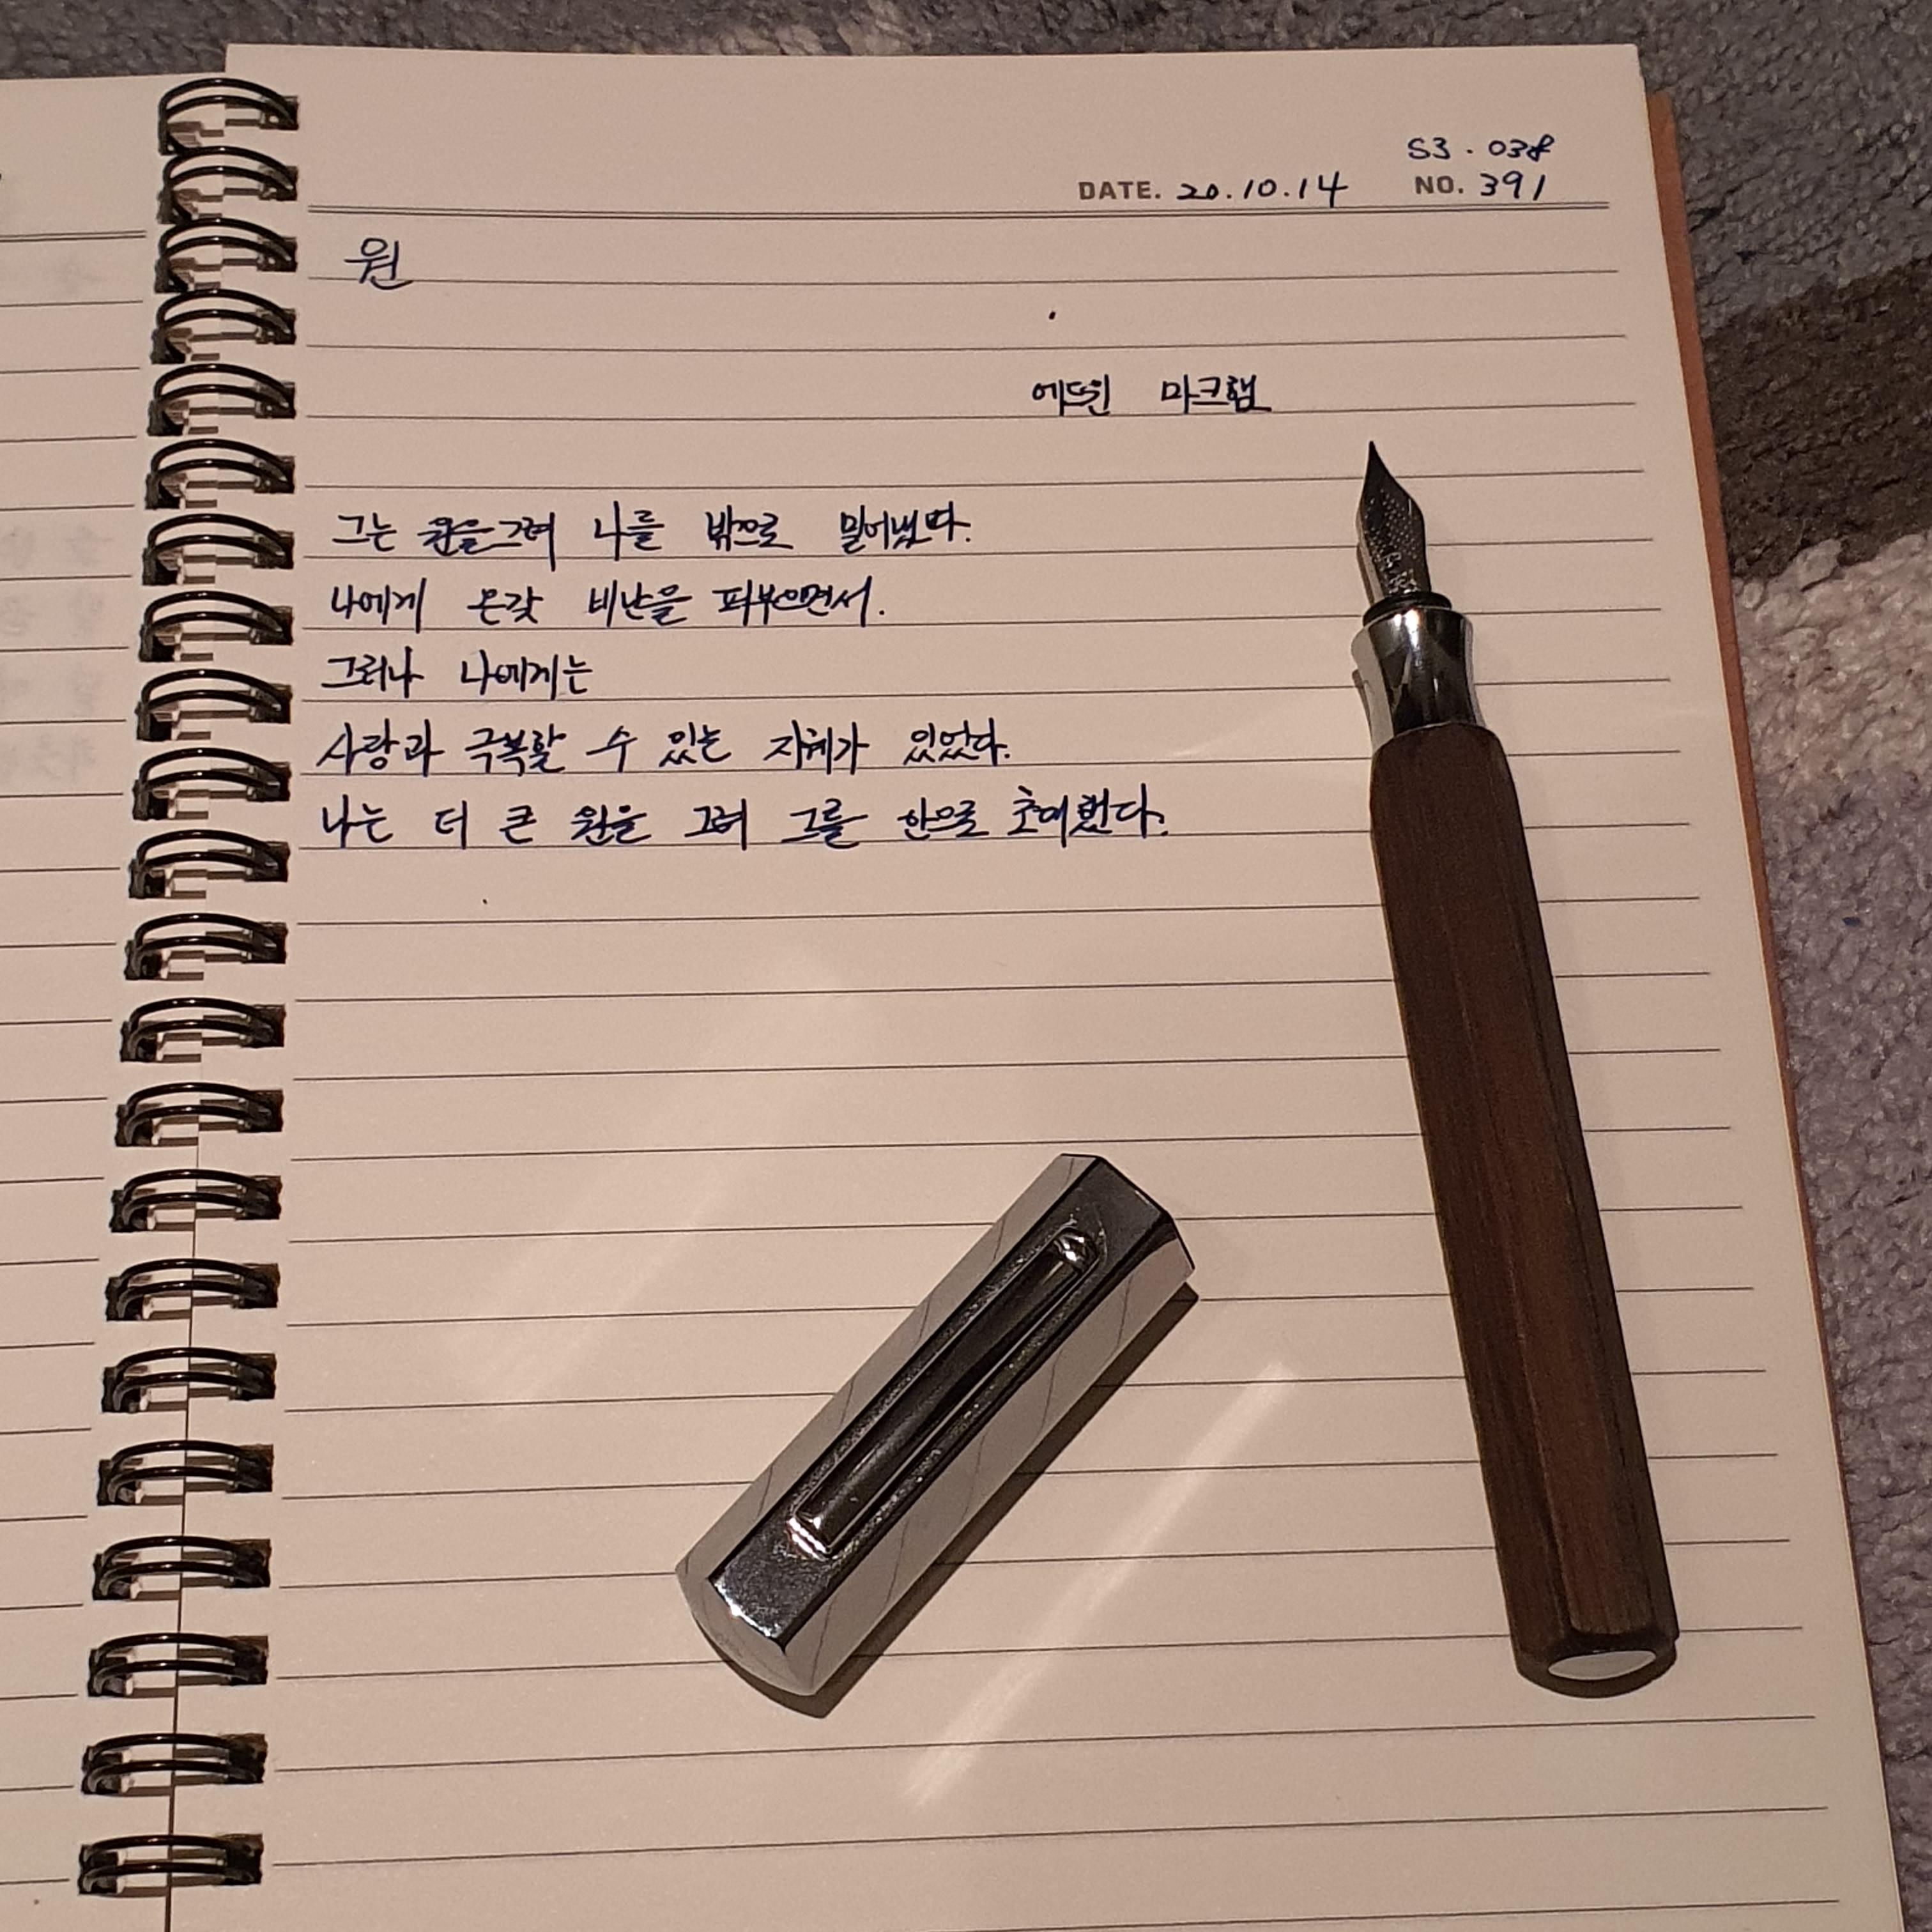 S3 . 038
DATE. 20.10.14 NO. 391
원
에드윈 마크햄
그는 원을 그려 나를 밖으로 밀어냈다.
나에게 온갖 비난을 퍼부으면서.
그러나 나에게는
사랑과 극복할 수 있는 지혜가 있었다.
나는 더 큰 원을 그려 그를 안으로 초대했다.